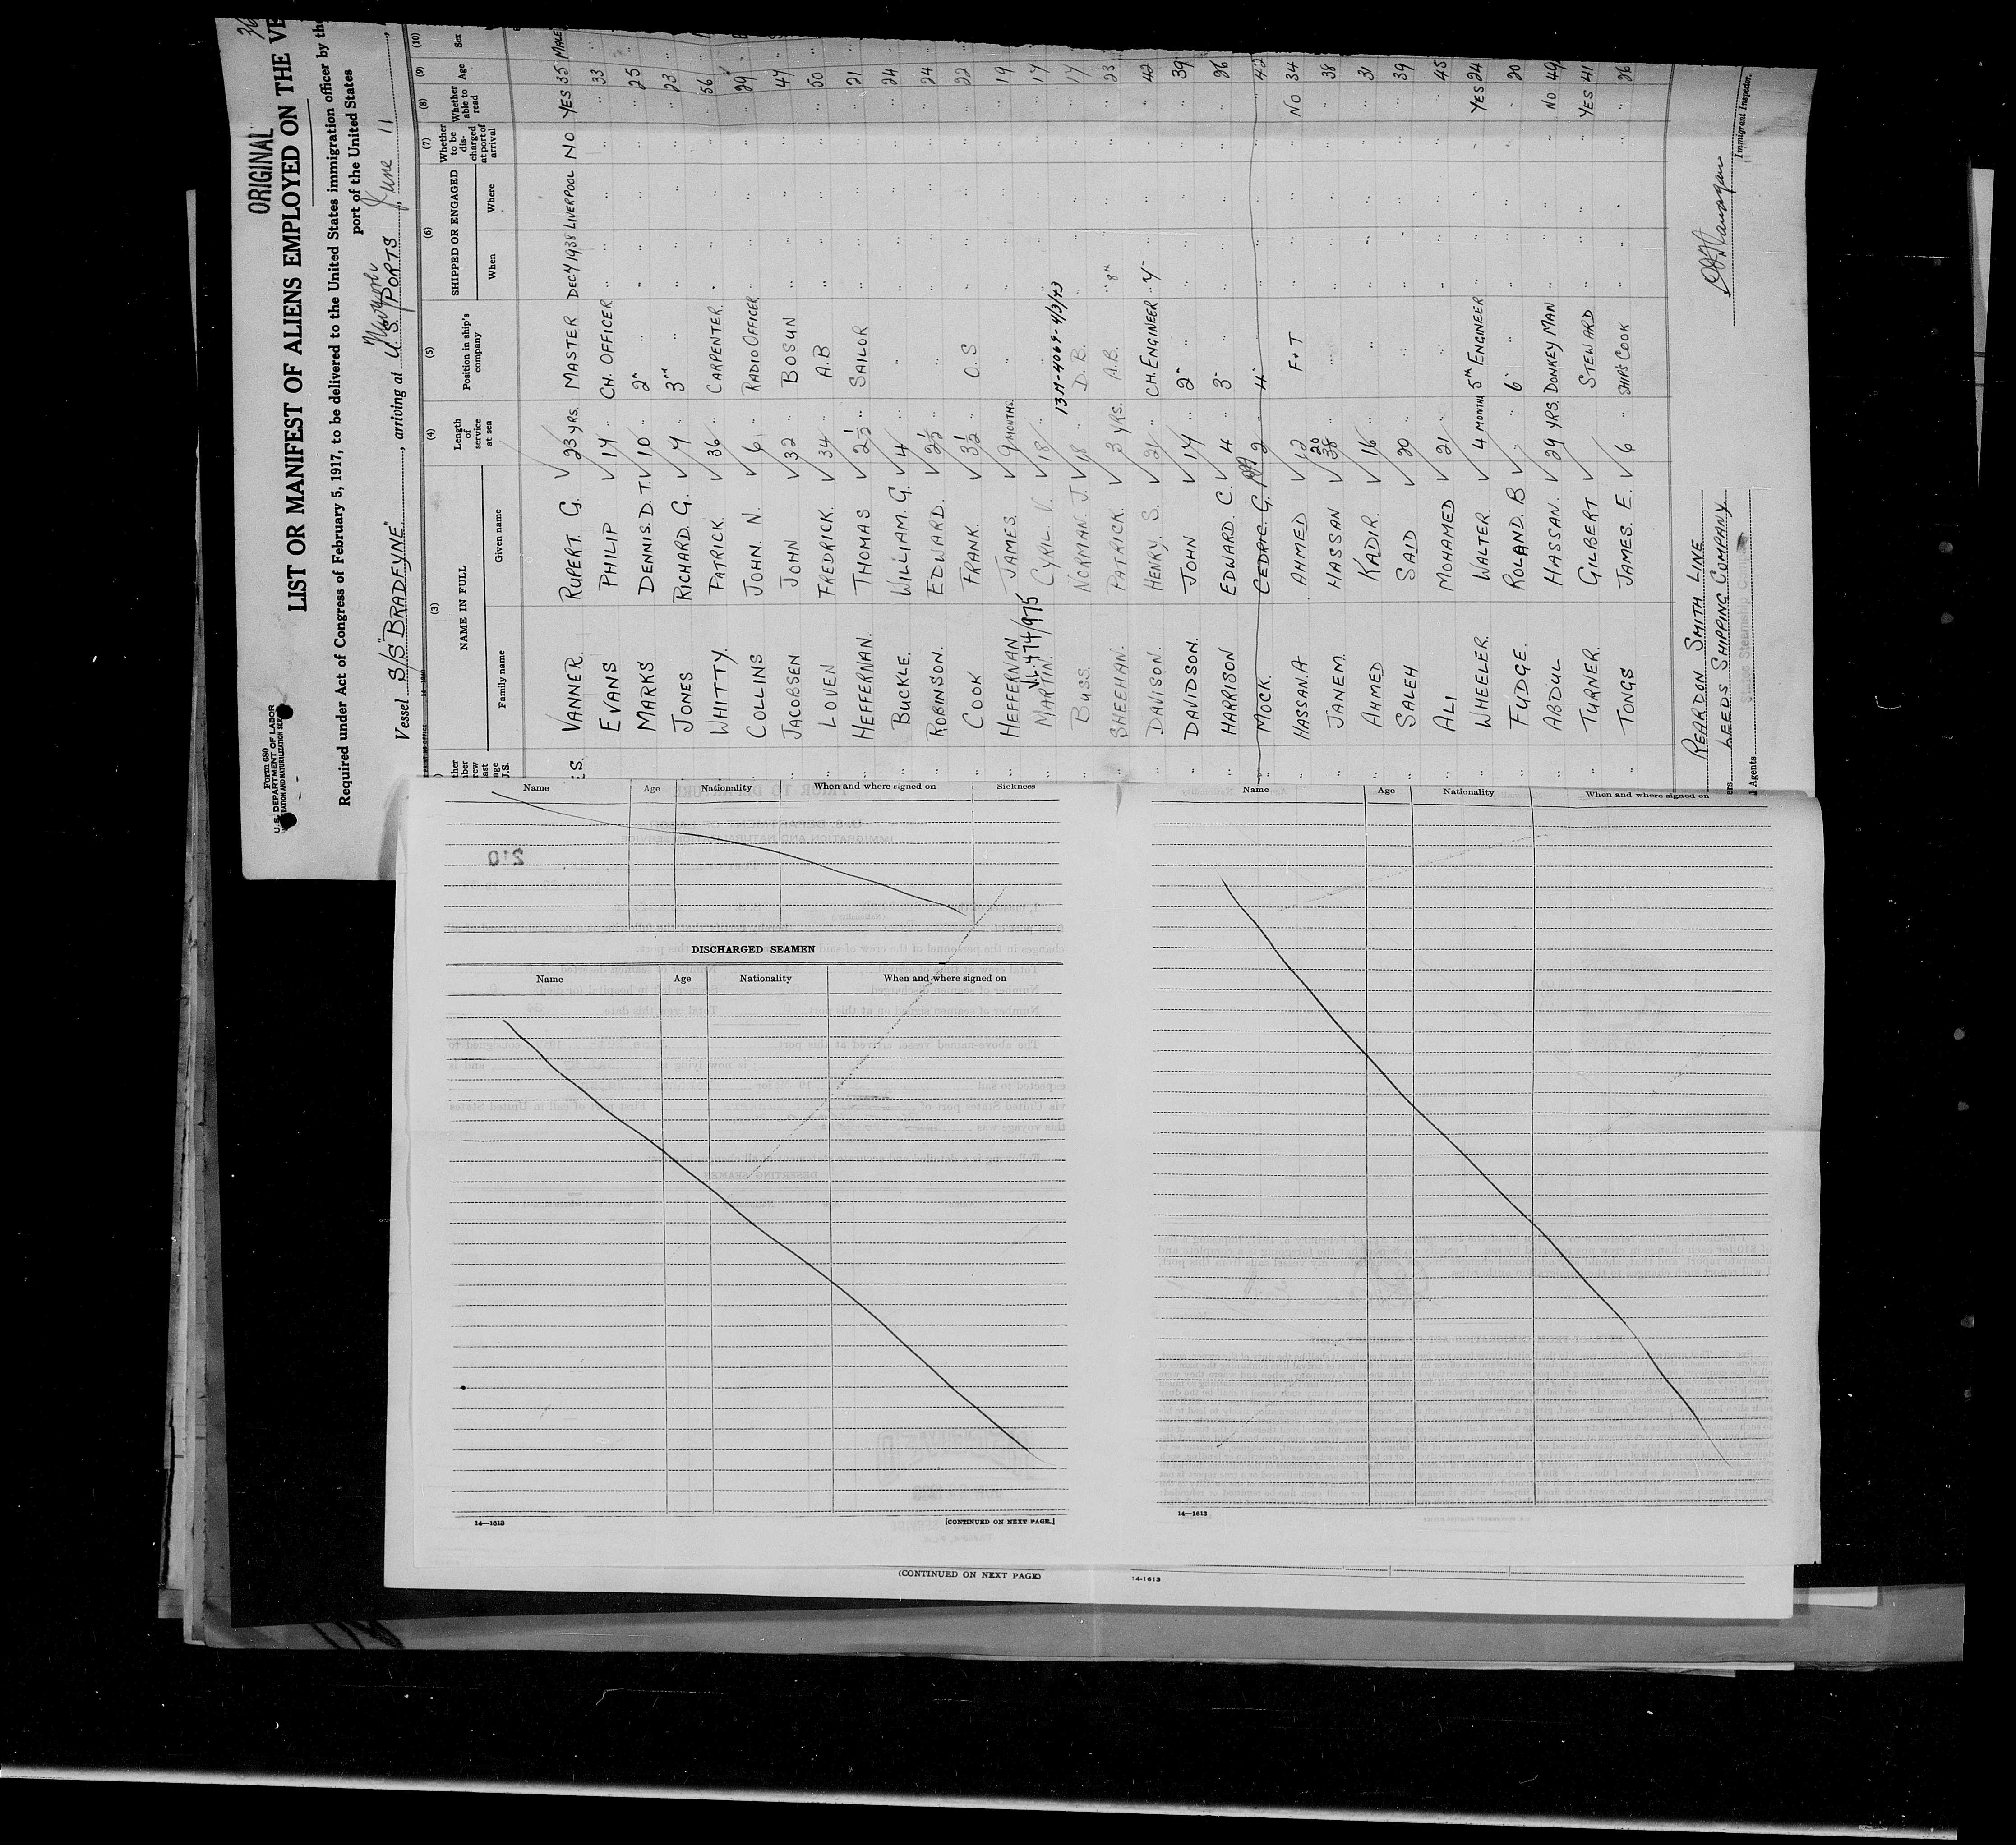 ORIGINAL
LIST OR MANIFEST OF ALIENS EMPLOYED ON THE VE
Form 680
U. S. DEPARTMENT OF LABOR
Required under Act of Congress of February 5, 1917, to be delivered to the United States immigration officer by the
port of the United States
Vessel S/S "BRADFYNE", arriving at U.S. PORTS, June 11,
(3) (4) (5) (6) (7) (8) (9) (10)
NAME IN FULL
Family name Given name
Length of service at sea
Position in ship's company
SHIPPED OR ENGAGED
When Where
Whether to be discharged at port of arrival
Whether able to read
Age
Sex
VANNER. RUPERT G. 23 YRS. MASTER DEC 7 1938 LIVERPOOL NO YES 35 MALE
EVANS PHILIP 17 " CH. OFFICER " " " " 33 "
MARKS DENNIS. D. T. 10 " 2" " " " " 25 "
JONES RICHARD G. 7 " 3rd " " " " 23 "
WHITTY. PATRICK. 36 " CARPENTER. " " " " 56 "
COLLINS JOHN. N. 6 " RADIO OFFICER " " " " 29 "
JACOBSEN JOHN 32 " BOSUN " " " " 47 "
LOVEN FREDRICK. 34 " A.B " " " " 50 "
HEFFERNAN. THOMAS 2½ " SAILOR " " " " 21 "
BUCKLE. WILLIAM. G. 4 " " " " " " 24 "
ROBINSON. EDWARD. 2½ " " " " " " 24 "
COOK FRANK. 3½ " O.S " " " " 22 "
HEFFERNAN JAMES. 9 MONTHS. " " " " " 19 "
VL-474/975
MARTIN. CYRIL V. 18 " " " " " " 17 "
13-11-4069-4/3/43
BUSS. NORMAN. J. 18 " D.B. " " " " 17 "
SHEEHAN. PATRICK. 3 YRS. A.B. " 8th " " " 23 "
DAVISON. HENRY. S. 21 " CH. ENGINEER " 7 " " " " 42 "
DAVIDSON. JOHN 17 " 2" " " " " 39 "
HARRISON EDWARD C. 4 " 3" " " " " 26 "
MOCK. CEDRIC G. 2 " 4" " " " " 42 "
HASSANA AHMED 12 F+T " " " NO 34 "
JANEM. HASSAN 20 38 " " " " " 38 "
AHMED KADIR. 16 " " " " " " 31 "
SALEH SAID 20 " " " " " " 39 "
ALI MOHAMED 21 " " " " " " 45 "
WHEELER. WALTER. 4 MONTHS 5th ENGINEER " " " YES 24 "
FUDGE. ROLAND. B " 6" " " " " 20 "
ABDUL HASSAN. 29 YRS. DONKEY MAN " " " NO 49 "
TURNER. GILBERT STEWARD " " " YES 41 "
TONGS JAMES. E. 6 " SHIP'S COOK " " " " 26 "
REARDON SMITH LINE
LEEDS SHIPPING COMPANY.
Agents
Immigrant Inspector.
Name Age Nationality When and where signed on Sickness
DISCHARGED SEAMEN
Name Age Nationality When and where signed on
14—1613
[CONTINUED ON NEXT PAGE.]
(CONTINUED ON NEXT PAGE)
Name Age Nationality When and where signed on
14—1613
14-1613